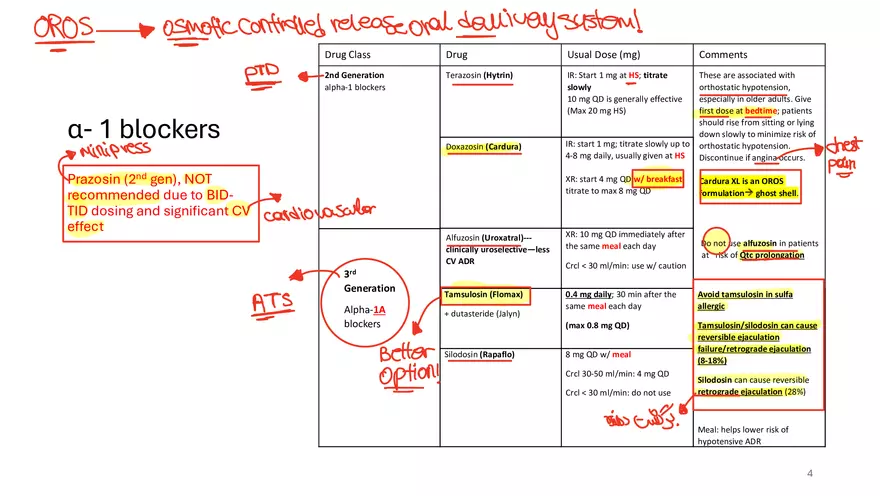 OROS → osmotic controlled release oral delivery system!
α- 1 blockers
minipress
Prazosin (2nd gen), NOT
recommended due to BID-
TID dosing and significant CV
effect
cardiovascular
Drug Class
Drug
Usual Dose (mg)
Comments
PTD
2nd Generation
alpha-1 blockers
Terazosin (Hytrin)
IR: Start 1 mg at HS; titrate
slowly
10 mg QD is generally effective
(Max 20 mg HS)
These are associated with
orthostatic hypotension,
especially in older adults. Give
first dose at bedtime; patients
should rise from sitting or lying
down slowly to minimize risk of
orthostatic hypotension.
Discontinue if angina occurs.
chest
pain
Doxazosin (Cardura)
IR: start 1 mg; titrate slowly up to
4-8 mg daily, usually given at HS
XR: start 4 mg QD w/ breakfast
titrate to max 8 mg QD
Cardura XL is an OROS
formulation→ ghost shell.
ATS
3rd
Generation
Alpha-1A
blockers
Alfuzosin (Uroxatral)---
clinically uroselective—less
CV ADR
XR: 10 mg QD immediately after
the same meal each day
Crcl < 30 ml/min: use w/ caution
Do not use alfuzosin in patients
at risk of Qtc prolongation
Better
option!
Tamsulosin (Flomax)
+ dutasteride (Jalyn)
0.4 mg daily; 30 min after the
same meal each day
(max 0.8 mg QD)
Avoid tamsulosin in sulfa
allergic
Tamsulosin/silodosin can cause
reversible ejaculation
failure/retrograde ejaculation
(8-18%)
Silodosin (Rapaflo)
8 mg QD w/ meal
Crcl 30-50 ml/min: 4 mg QD
Crcl < 30 ml/min: do not use
Silodosin can cause reversible
retrograde ejaculation (28%)
Meal: helps lower risk of
hypotensive ADR
4